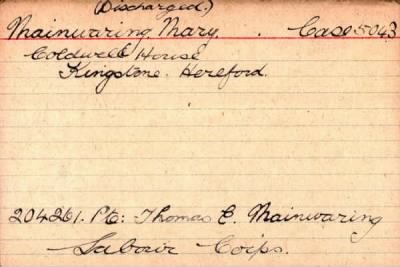 (Discharged.)
Mainwaring Mary. Case 5043
Coldwell House
Kingstone. Hereford.
204261. Pte: Thomas E. Mainwaring
Labour Corps.